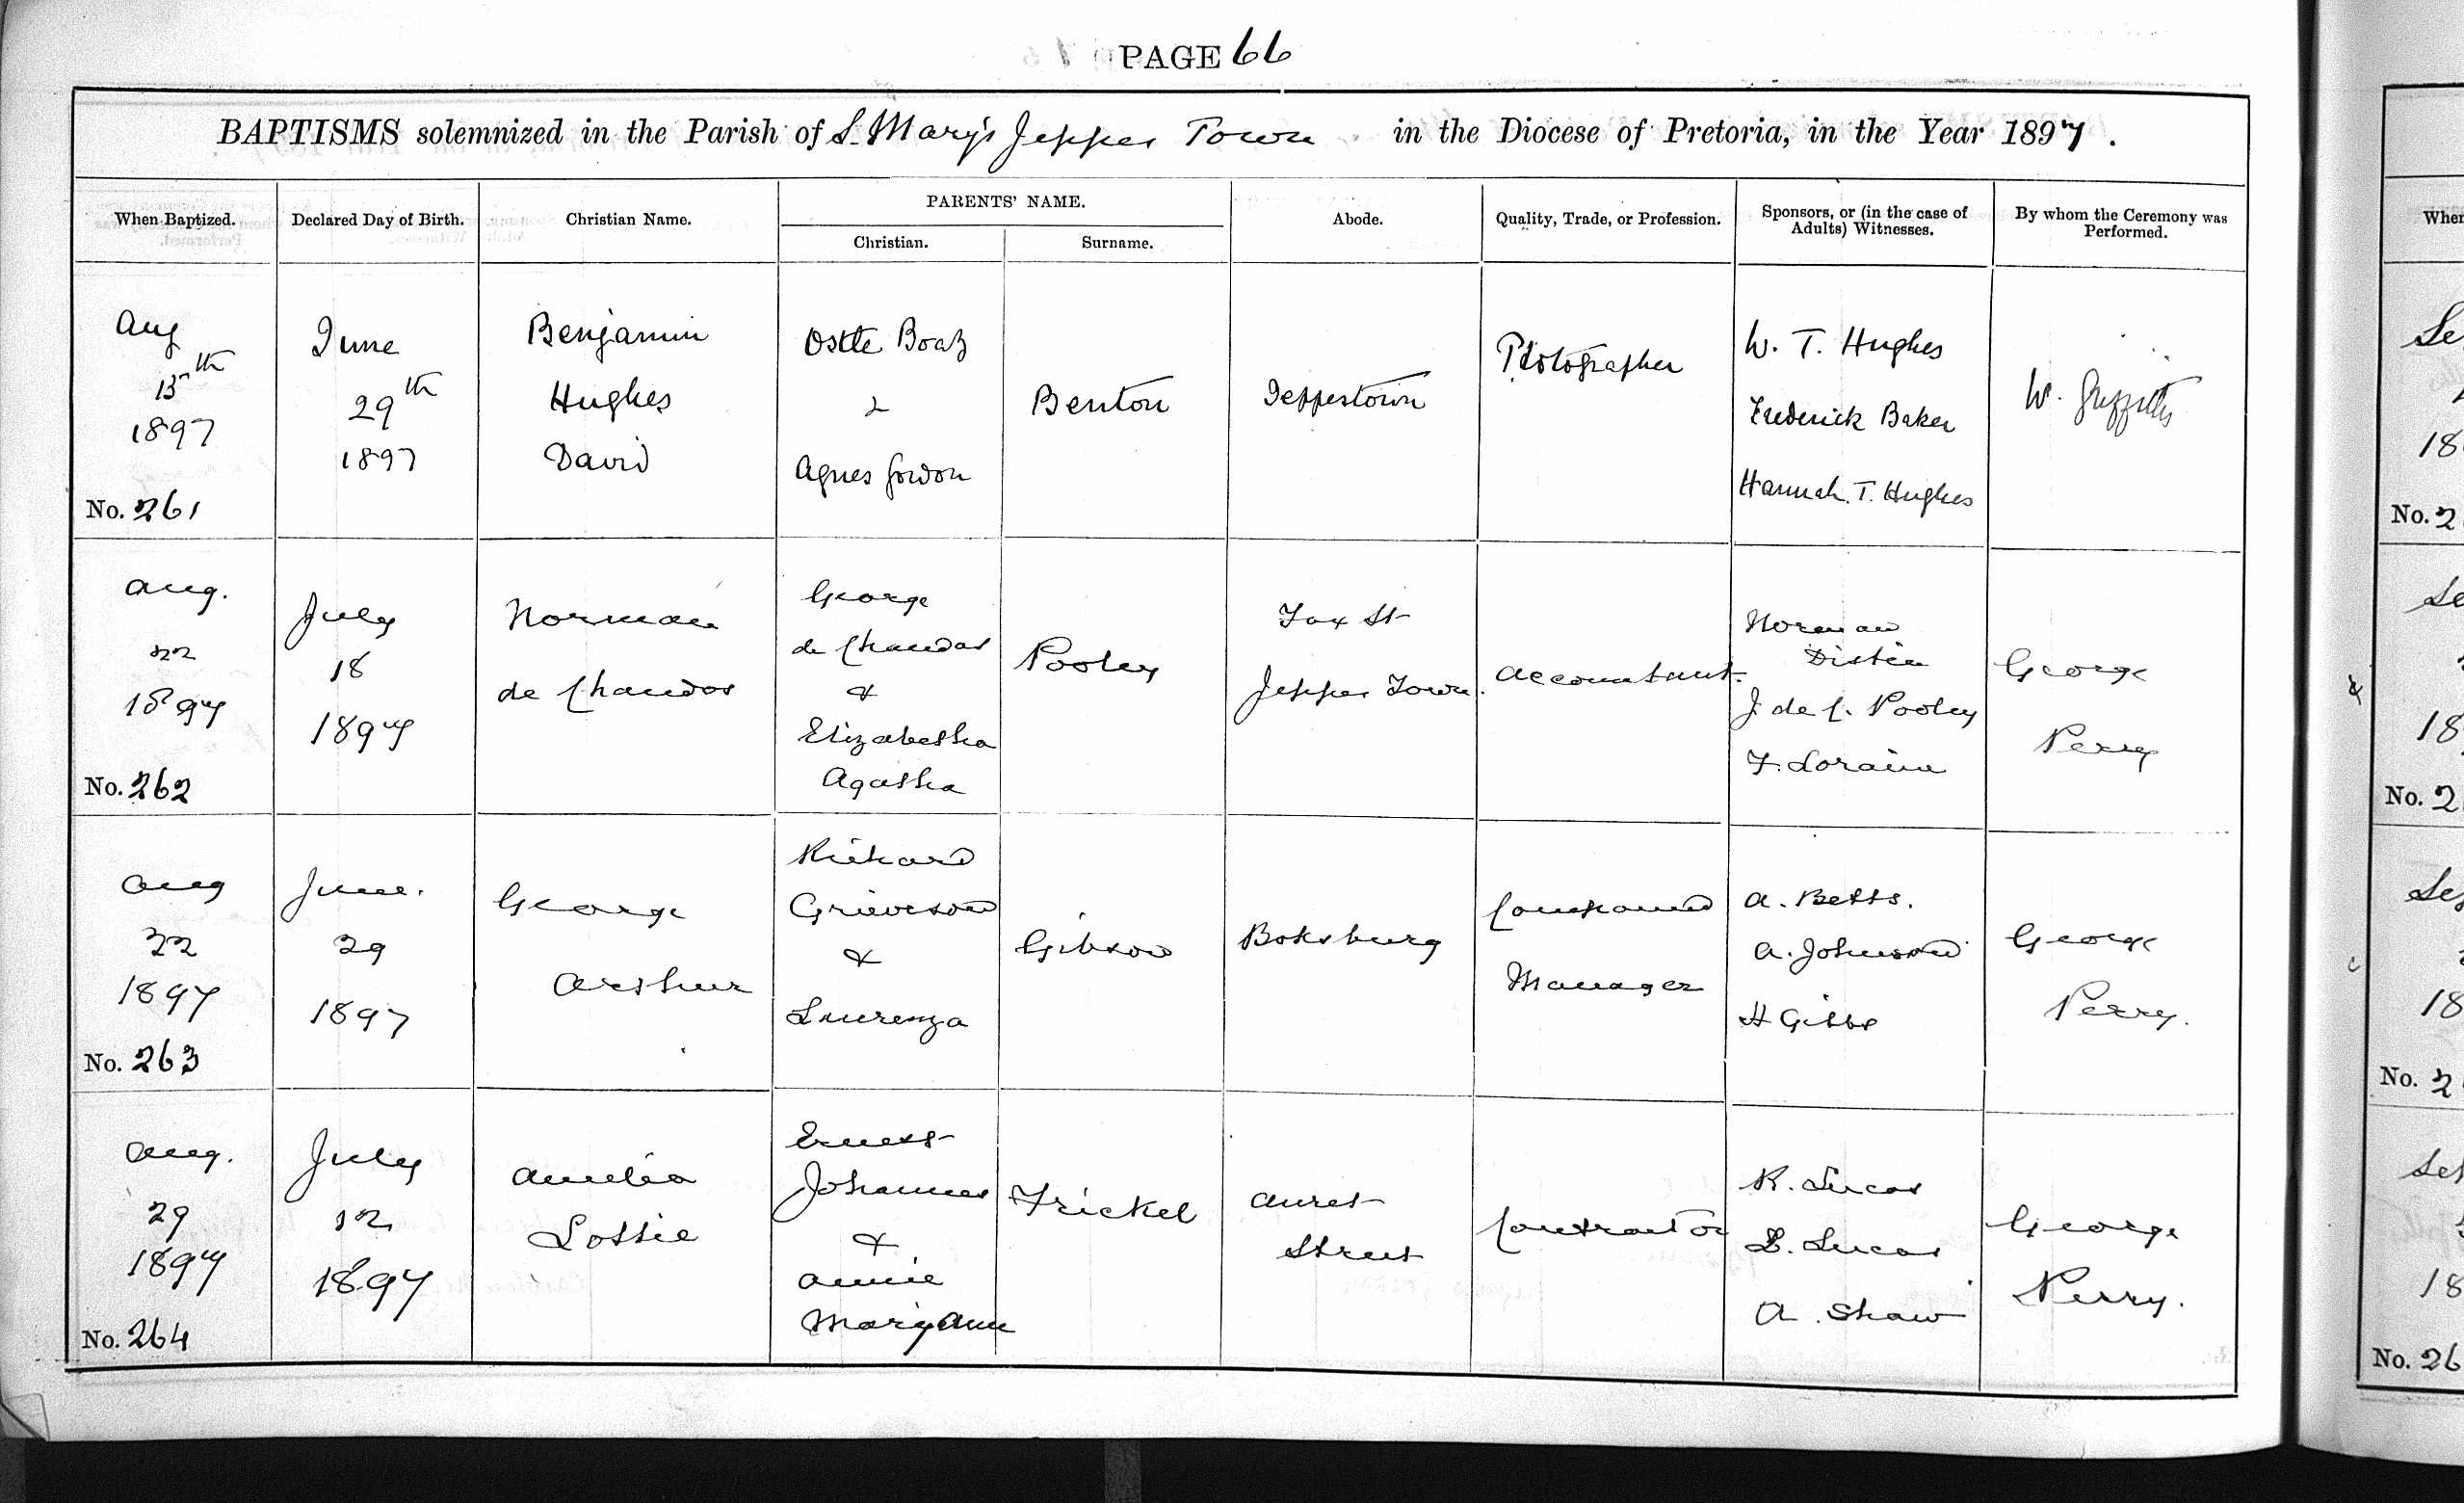 PAGE 66
BAPTISMS solemnized in the Parish of S. Mary's Jeppes Town in the Diocese of Pretoria, in the Year 1897.
When Baptized.
Declared Day of Birth.
Christian Name.
PARENTS' NAME.
Christian.
Surname.
Abode.
Quality, Trade, or Profession.
Sponsors, or (in the case of
Adults) Witnesses.
By whom the Ceremony was
Performed.
Aug
15th
1897
No. 261
June
29th
1897
Benjamin
Hughes
David
Ostle Boaz
&
Agnes Gordon
Benton
Jeppestown
Photographer
W. T. Hughes
Frederick Baker
Hannah. T. Hughes
W. Griffiths
Aug.
22
1897
No. 262
July
18
1897
Norman
de Chandos
George
de Chandos
&
Elizabetha
Agatha
Pooley
Fox St
Jeppes Town.
Accountant.
Norman
Distin
J de C. Pooley
F. Loraine
George
Perry
Aug
22
1897
No. 263
June.
29
1897
George
Arthur
Richard
Grieveson
&
Laurenza
Gibson
Boksburg
Compound
Manager
A. Betts.
A. Johnson
H Gibbs
George
Perry.
Aug.
29
1897
No. 264
July
12
1897
Amelia
Lottie
Ernest
Johannes
&
Annie
Mary Ann
Frickel
Auret
Street
Contractor
R. Lucas
L. Lucas
A. Shaw
George
Perry.
When
18
No. 2
18
No. 2
18
No. 2
18
No. 26